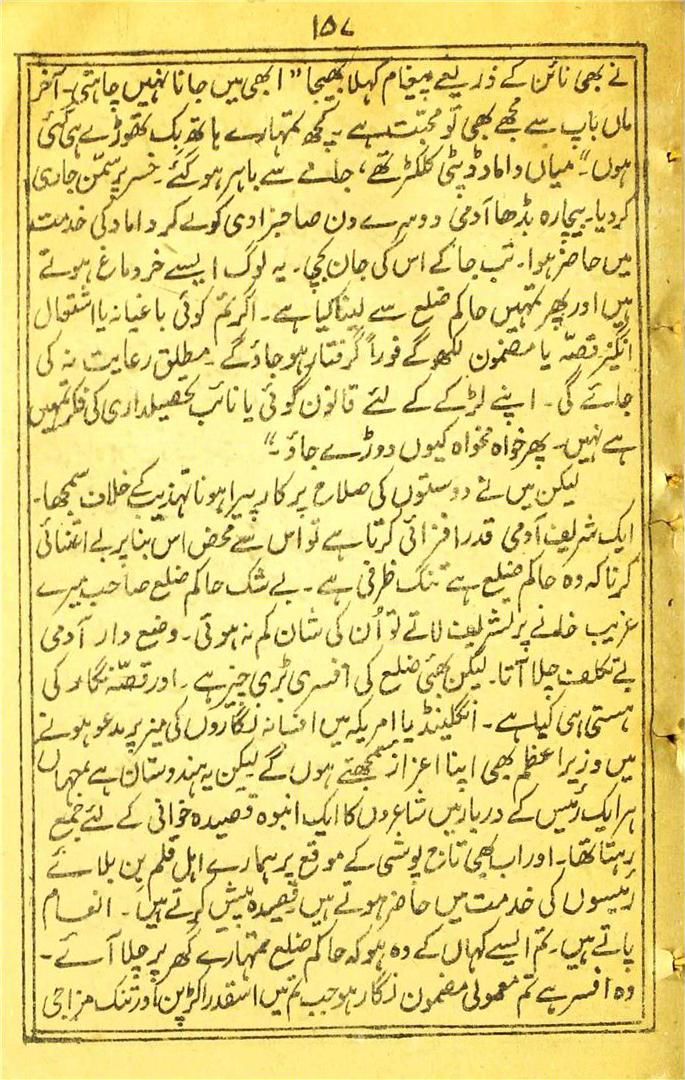 ۱۵۷
نے بھی نائن کے ذریعے پیغام کہلا بھیجا "ابھی میں جانا نہیں چاہتی۔ آخر
ماں باپ سے مجھے بھی تو محبت ہے۔ کچھ تمہارے ہاتھ بک تھوڑے ہی گئی
ہوں"۔ میاں داماد ڈپٹی کلکٹر تھے، جامے سے باہر ہو گئے۔ خسر پر سمّن جاری
کر دیا۔ بیچارہ بڈھا آدمی دوسرے دن صاحبزادی کو لے کر داماد کی خدمت
میں حاضر ہوا۔ تب جا کے اس کی جان بچی۔ یہ لوگ ایسے خردماغ ہوتے
ہیں اور پھر تمہیں حاکم ضلع سے لینا کیا ہے۔ اگر تم کوئی باغیانہ یا اشتعال
انگیز قصّہ یا مضمون لکھو گے فوراً گرفتار ہو جاؤ گے۔ مطلق رعایت نہ کی
جائے گی۔ اپنے لڑکے کے لئے قانون گوئی یا نائب تحصیلداری کی فکر تمہیں
ہے نہیں۔ پھر خواہ مخواہ کیوں دوڑے جاؤ۔"
لیکن میں نے دوستوں کی صلاح پر کار پیرا ہونا تہذیب کے خلاف سمجھا۔
ایک شریف آدمی قدر افزائی کرتا ہے تو اس سے محض اس بنا پر بے اعتنائی
کرنا کہ وہ حاکم ضلع ہے تنگ ظرفی ہے۔ بے شک حاکم ضلع صاحب میرے
غریب خانے پر تشریف لاتے تو اُن کی شان کم نہ ہوتی۔ وضع دار آدمی
بے تکلف چلا آتا۔ لیکن بھئی ضلع کی افسری بڑی چیز ہے۔ اور قصّہ نگار کی
ہستی ہی کیا ہے۔ انگلینڈ یا امریکہ میں افسانہ نگاروں کی میز پر مدعو ہونے
میں وزیر اعظم بھی اپنا اعزاز سمجھتے ہوں گے لیکن یہ ہندوستان ہے جہاں
ہر ایک رئیس کے دربار میں شاعروں کا ایک انبوہ قصیدہ خوانی کے لئے جمع
رہتا تھا۔ اور اب بھی تاج پوشی کے موقع پر ہمارے اہل قلم بن بلائے
رئیسوں کی خدمت میں حاضر ہوتے ہیں قصیدہ پیش کرتے ہیں۔ انعام
پاتے ہیں۔ تم ایسے کہاں کے وہ ہو کہ حاکم ضلع تمہارے گھر پر چلا آئے۔
وہ افسر ہے تم معمولی مضمون نگار ہو جب تم میں اسقدر اکڑپن اور تنک مزاجی